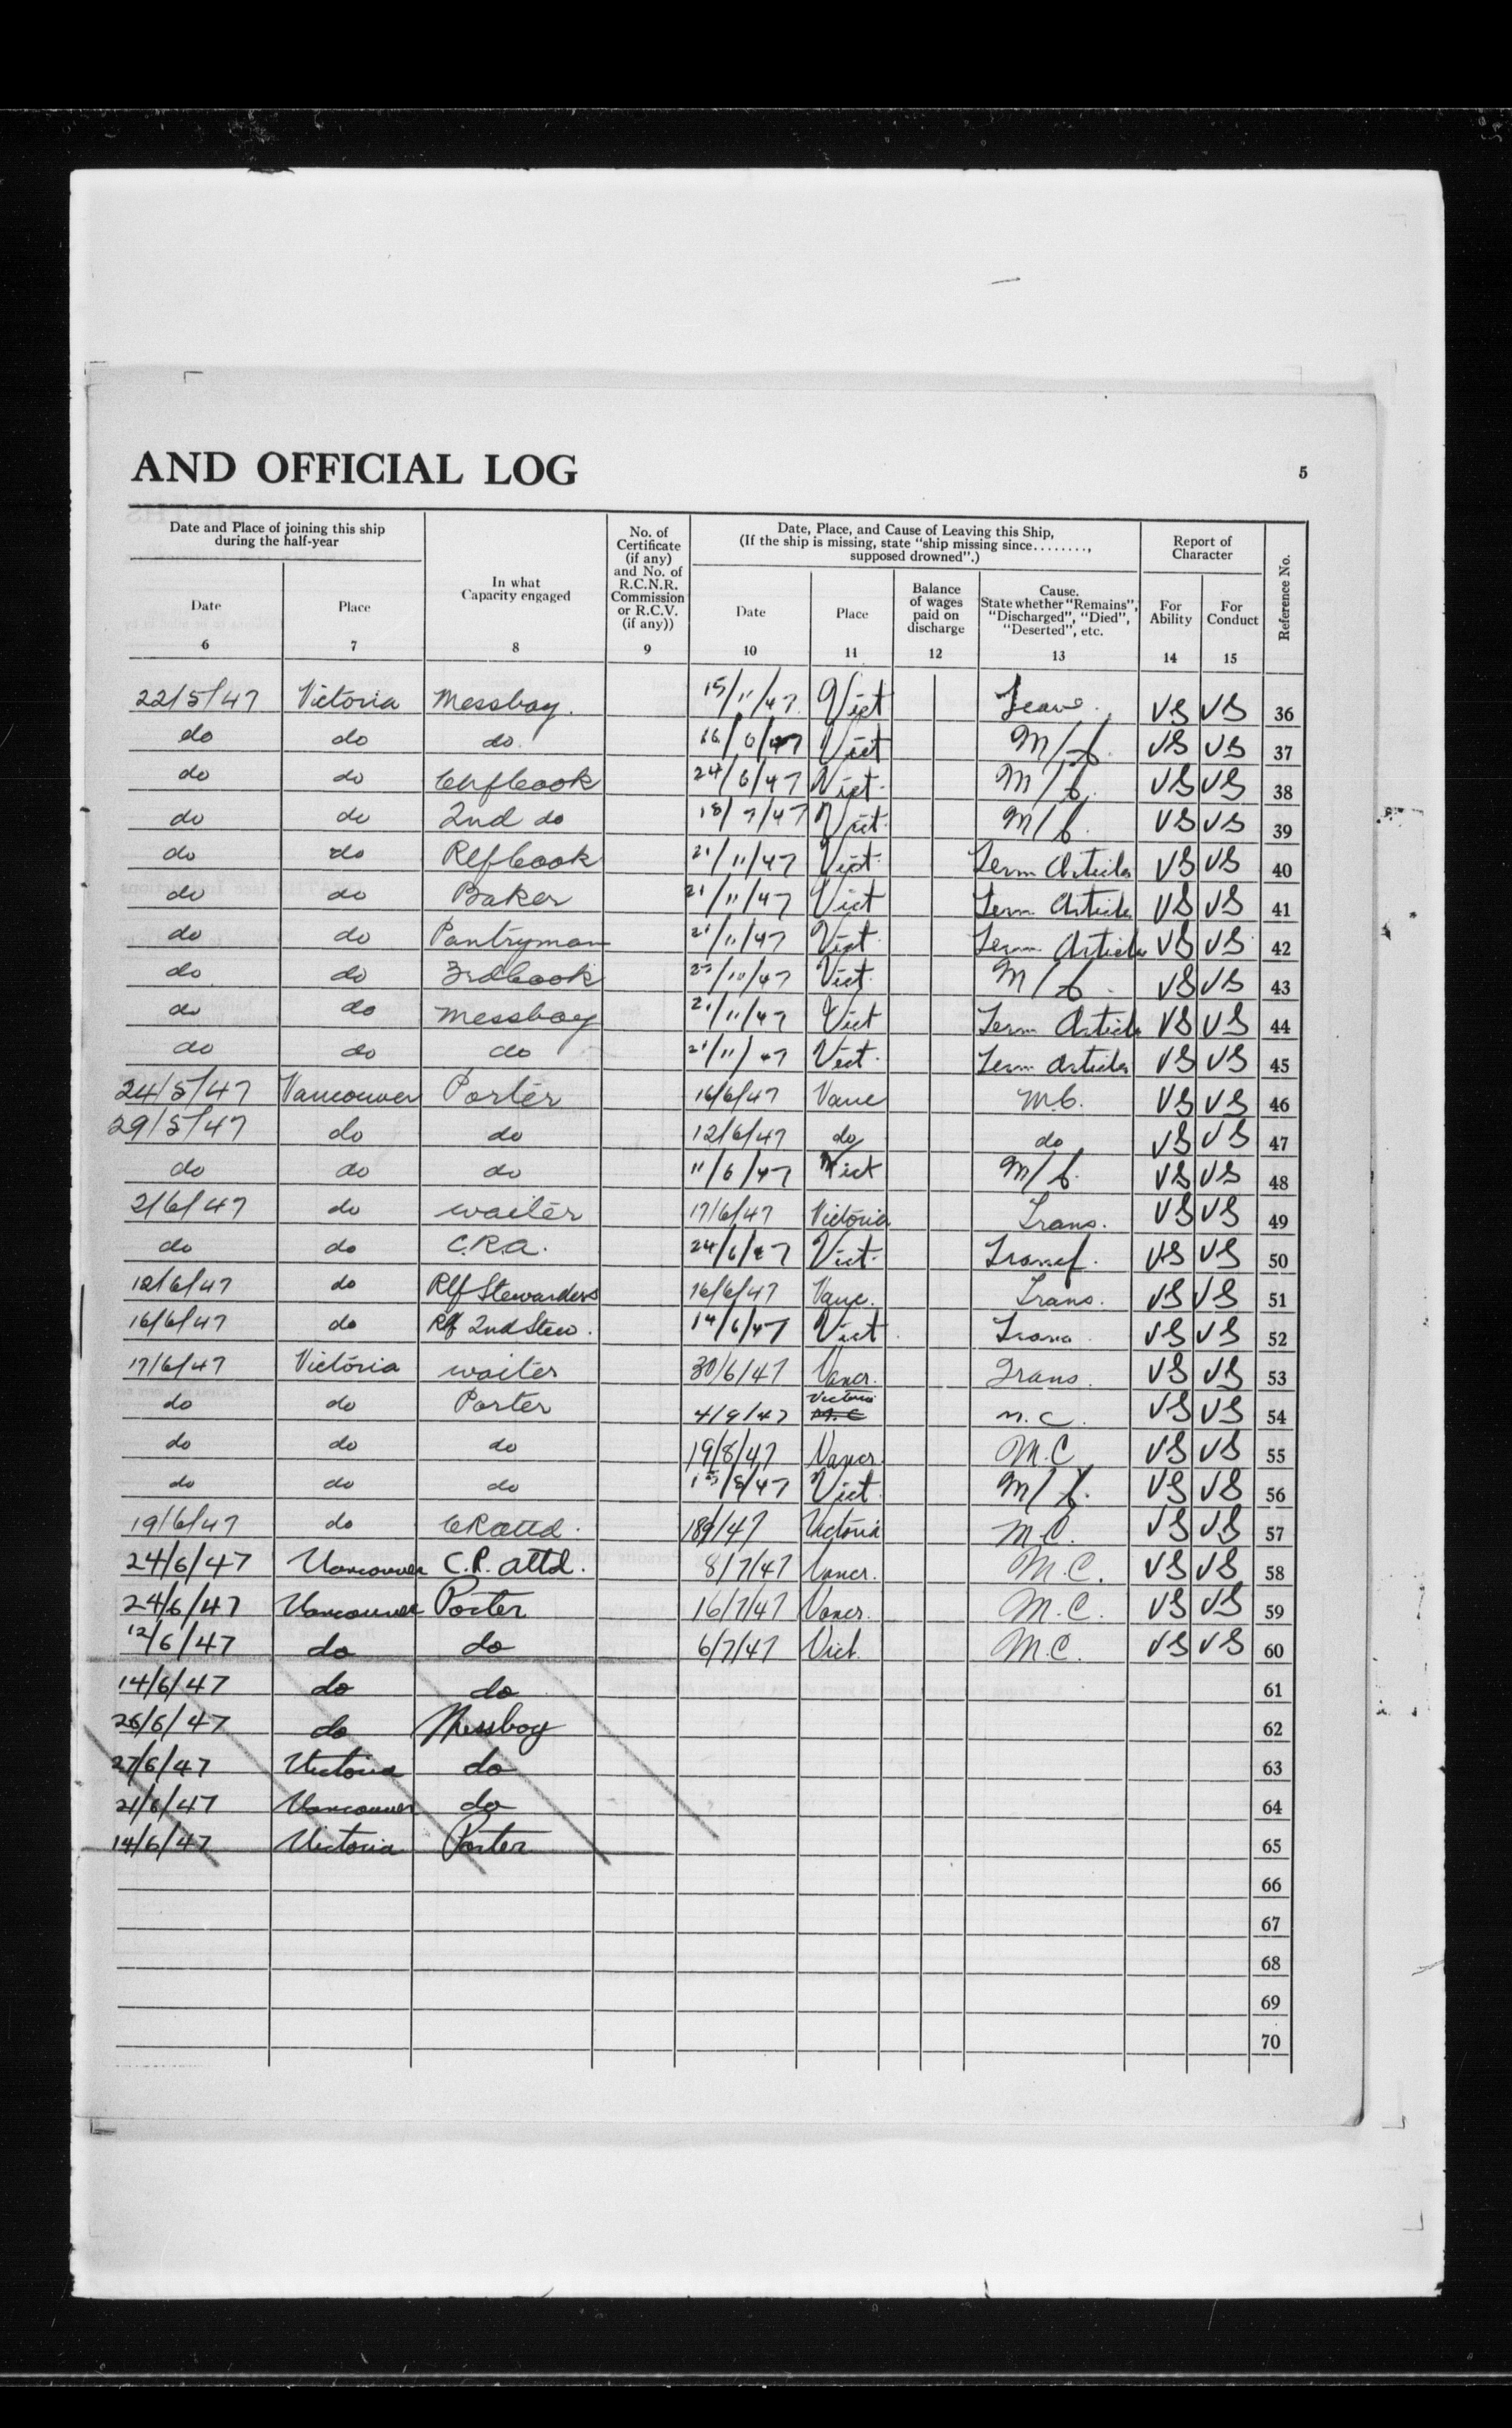 AND OFFICIAL LOG 5
Date and Place of joining this ship during the half-year
In what Capacity engaged
No. of Certificate (if any) and No. of R.C.N.R. Commission or R.C.V. (if any))
Date, Place, and Cause of Leaving this Ship,
(If the ship is missing, state "ship missing since........, supposed drowned".)
Report of Character
Reference No.
Date Place Date Place Balance of wages paid on discharge Cause. State whether "Remains", "Discharged", "Died", "Deserted", etc. For Ability For Conduct
6 7 8 9 10 11 12 13 14 15
22/5/47 Victoria Messboy. 15/11/47 Vict Leave. VS VS 36
do do do. 16/6/47 Vict M/C. VS VS 37
do do Chf Cook 24/6/47 Vict. M/C. VS VS 38
do do 2nd do 18/7/47 Vict. M/C. VS VS 39
do do Relf Cook 21/11/47 Vict. Term Articles VS VS 40
do do Baker 21/11/47 Vict Term. Articles VS VS 41
do do Pantryman 21/11/47 Vict. Term. Articles VS VS 42
do do 3rd Cook /10/47 Vict. M/C. VS VS 43
do do Messboy 21/11/47 Vict Term Articles VS VS 44
do do do 21/11/47 Vict. Term Articles VS VS 45
24/5/47 Vancouver Porter 16/6/47 Vanc M.C. VS VS 46
29/5/47 do do 12/6/47 do do VS VS 47
do do do 11/6/47 Vict M/C. VS VS 48
2/6/47 do waiter 17/6/47 Victoria Trans. VS VS 49
do do C.R.A. 24/6/47 Vict. Transf. VS VS 50
12/6/47 do Rlf Stewardess 16/6/47 Vanc. Trans. VS VS 51
16/6/47 do Rlf 2nd Stew. 14/6/47 Vict. Trans. VS VS 52
17/6/47 Victoria waiter 30/6/47 Vancr. Trans. VS VS 53
do do Porter 4/9/47 Victoria M.C. M.C. VS VS 54
do do do 19/8/47 Vancr. M.C. VS VS 55
do do do /8/47 Vict. M/C. VS VS 56
19/6/47 do CR attd. 18/9/47 Victoria M.C. VS VS 57
24/6/47 Vancouver C.R. attd. 8/7/47 Vancr. M.C. VS VS 58
24/6/47 Vancouver Porter 16/7/47 Vancr. M.C. VS VS 59
12/6/47 do do 6/7/47 Vict. M.C. VS VS 60
14/6/47 do do 61
26/6/47 do Messboy 62
27/6/47 Victoria do 63
21/6/47 Vancouver do 64
14/6/47 Victoria Porter 65
66
67
68
69
70